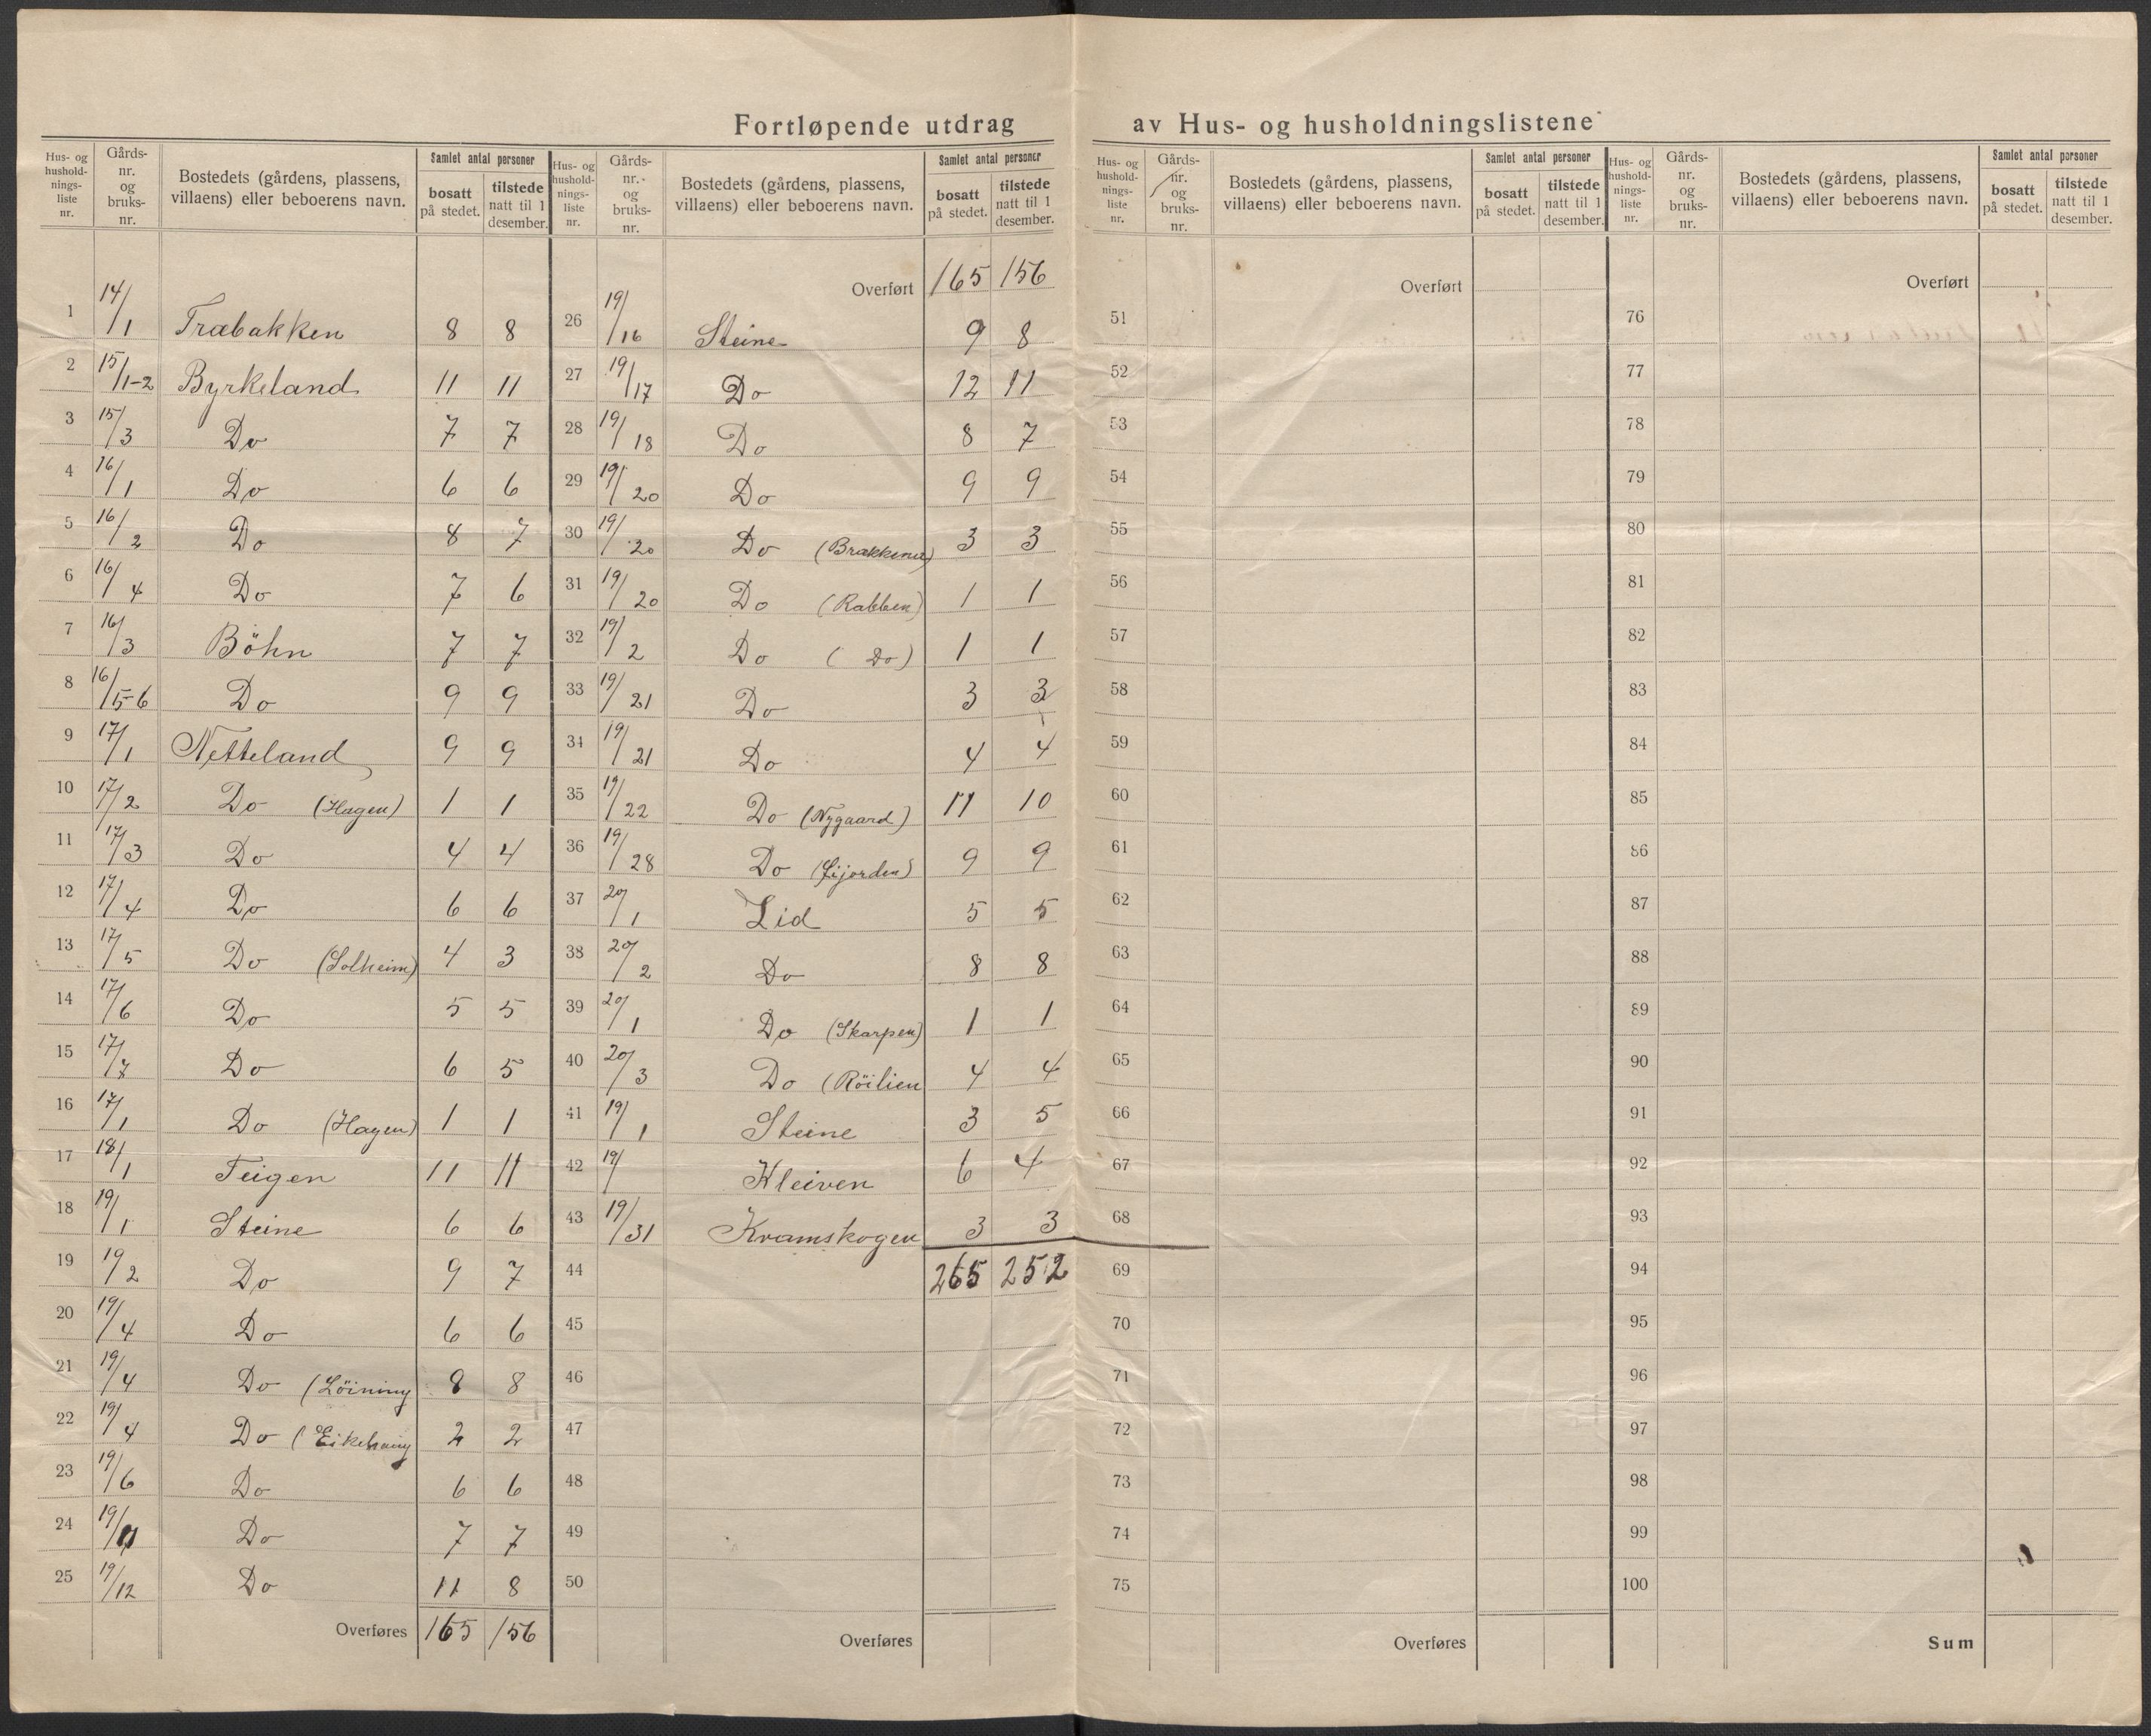 Fortløpende utdrag av Hus- og husholdningslistene
Hus- og husholdnings-liste nr. | Gårds-nr. og bruks-nr. | Bostedets (gårdens, plassens, villaens) eller beboerens navn. | Samlet antal personer bosatt på stedet. | tilstede natt til 1 desember.
1 14/1 Træbakken 8 8
2 15/1-2 Byrkeland 11 11
3 15/3 Do 7 7
4 16/1 Do 6 6
5 16/2 Do 8 7
6 16/4 Do 7 6
7 16/3 Böhn 7 7
8 16/5-6 Do 9 9
9 17/1 Netteland 9 9
10 17/2 Do (Hagen) 1 1
11 17/3 Do 4 4
12 17/4 Do 6 6
13 17/5 Do (Solheim) 4 3
14 17/6 Do 5 5
15 17/7 Do 6 5
16 17/1 Do (Hagen) 1 1
17 18/1 Teigen 11 11
18 19/1 Steine 6 6
19 19/2 Do 9 7
20 19/4 Do 6 6
21 19/4 Do (Löining 8 8
22 19/4 Do (Eikehaug 2 2
23 19/6 Do 6 6
24 19/ Do 7 7
25 19/12 Do 11 8
Overføres 165 156
Hus- og husholdnings-liste nr. | Gårds-nr. og bruks-nr. | Bostedets (gårdens, plassens, villaens) eller beboerens navn. | Samlet antal personer bosatt på stedet. | tilstede natt til 1 desember.
Overført 165 156
26 19/16 Steine 9 8
27 19/17 Do 12 11
28 19/18 Do 8 7
29 19/20 Do 9 9
30 19/20 Do (Brakkena) 3 3
31 19/20 Do (Rabben) 1 1
32 19/2 Do (Do) 1 1
33 19/21 Do 3 3
34 19/21 Do 4 4
35 19/22 Do (Nygaard) 11 10
36 19/28 Do 9 9
37 20/1 Lid 5 5
38 20/2 Do 8 8
39 20/1 Do (Skarpen) 1 1
40 20/3 Do (Röilien 4 4
41 19/1 Steine 3 5
42 19/ Kleiven 6 4
43 19/31 Kramskogen 3 3
44 265 252
45
46
47
48
49
50
Overføres
Hus- og husholdnings-liste nr. | Gårds-nr. og bruks-nr. | Bostedets (gårdens, plassens, villaens) eller beboerens navn. | Samlet antal personer bosatt på stedet. | tilstede natt til 1 desember.
Overført
51
52
53
54
55
56
57
58
59
60
61
62
63
64
65
66
67
68
69
70
71
72
73
74
75
Overføres
Hus- og husholdnings-liste nr. | Gårds-nr. og bruks-nr. | Bostedets (gårdens, plassens, villaens) eller beboerens navn. | Samlet antal personer bosatt på stedet. | tilstede natt til 1 desember.
Overført
76
77
78
79
80
81
82
83
84
85
86
87
88
89
90
91
92
93
94
95
96
97
98
99
100
Sum